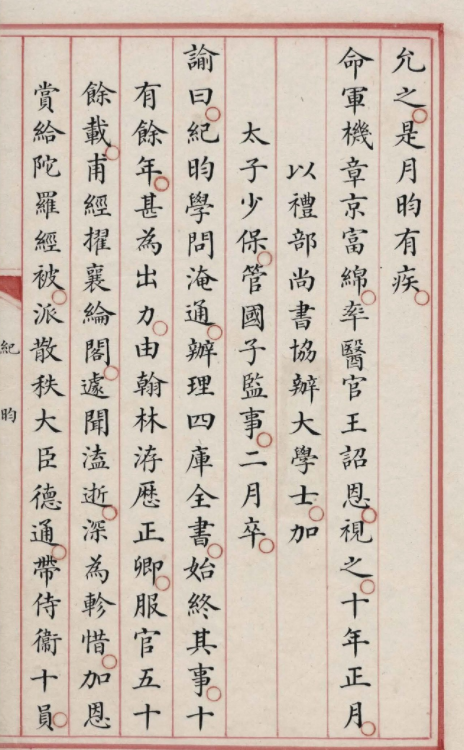 允之是月昀有疾
命軍機章京富綿率醫官王詔恩視之十年正月
以禮部尚書協辦大學士加
太子少保管國子監事二月卒
諭曰紀昀學問淹通辦理四庫全書始終其事十
有餘年甚為出力由翰林洊歷正卿服官五十
餘載甫經擢襄綸閣遽聞溘逝深為軫惜加恩
賞給陀羅經被派散秩大臣德通帶侍衞十員
紀昀